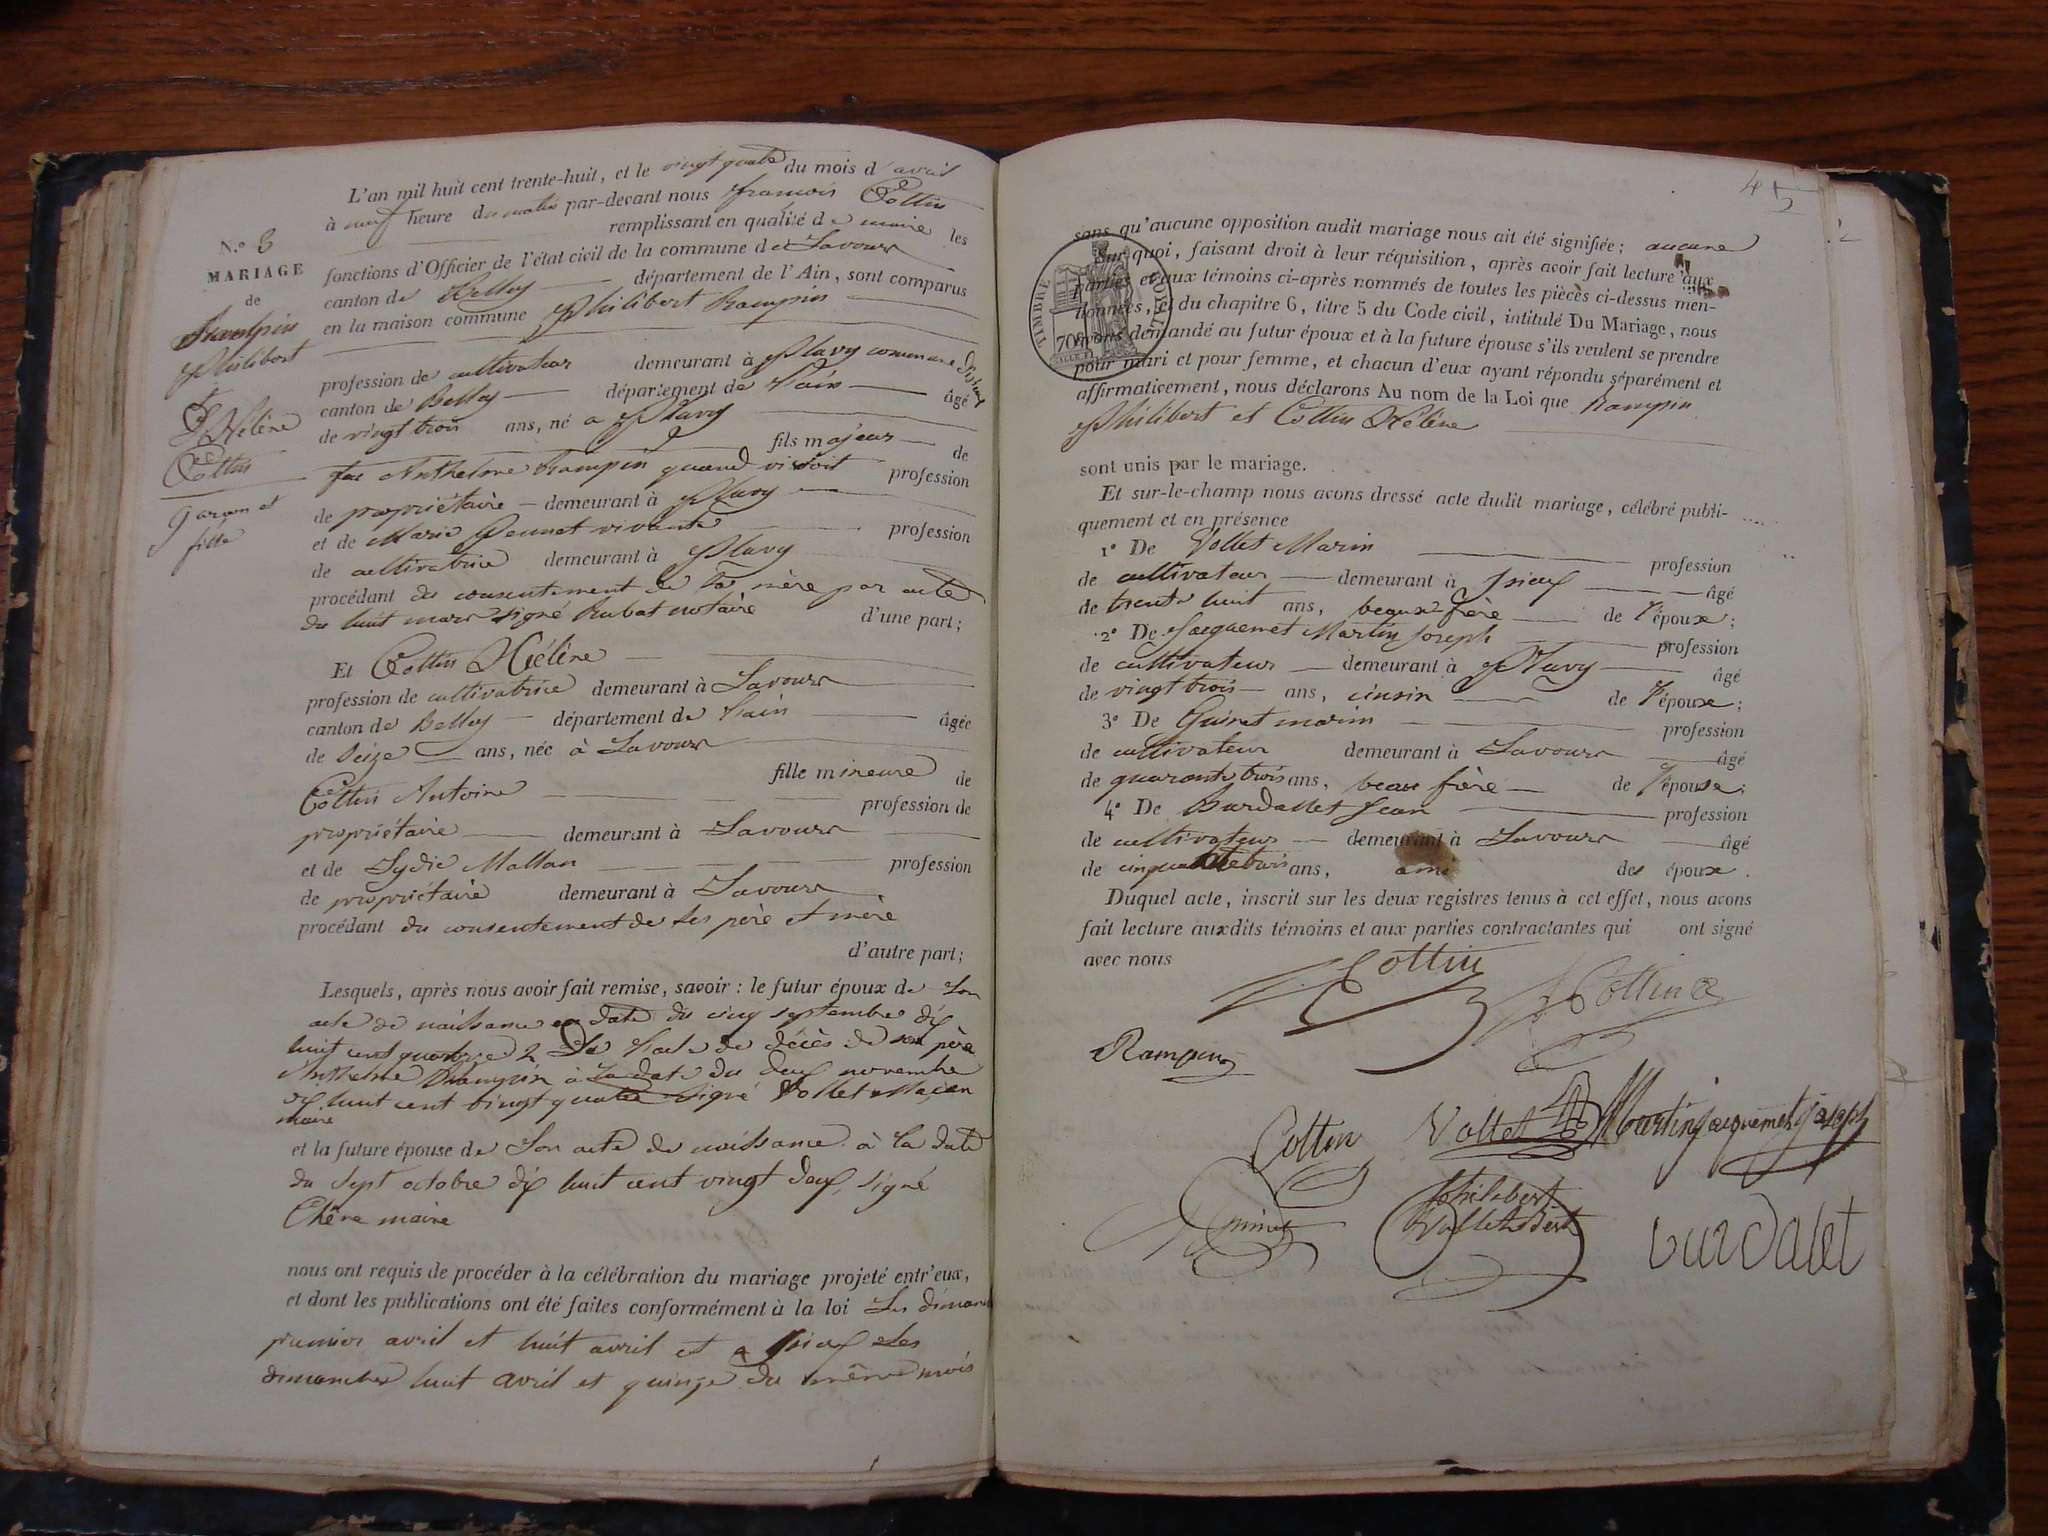 L'an mil huit cent trente-huit, et le vingt quatre du mois d'avril
à neuf heure du matin par-devant nous françois Cottin
remplissant en qualité de maire les
fonctions d'Officier de l'état civil de la commune de Lavours
canton de Belley département de l'Ain, sont comparus
en la maison commune Philibert Rampin
N.º 3
MARIAGE
de
Rampin
Philibert
&
Hélène
Cottin
garçon et
fille
profession de cultivateur demeurant à Flavy commune
canton de Belley département de l'ain âgé
de vingt trois ans, né a Flavy
fils majeur de
feu Anthelme Rampin quand vivoit profession
de propriétaire demeurant à Flavy
et de Marie vivante profession
de cultivatrice demeurant à Flavy
procédant du consentement de sa mère par acte
du huit mars signé Rubat notaire d'une part;
Et Cottin Hélène
profession de cultivatrice demeurant à Lavours
canton de Belley département de l'ain âgée
de seize ans, née à Lavours
fille mineure de
Cottin Antoine profession de
propriétaire demeurant à Lavours
et de Lydie Mallan profession
de propriétaire demeurant à Lavours
procédant du consentement de ses père et mère
d'autre part;
Lesquels, après nous avoir fait remise, savoir : le futur époux de son
acte de naissance en date du cinq septembre dix
huit cent quatorze 2 De l'acte de décès de son père
Anthelme Rampin à la date du deux novembre
dix huit cent vingt quatre signé Vollet
maire
et la future épouse de son acte de naissance à la date
du sept octobre dix huit cent vingt deux, signé
Chêne maire
nous ont requis de procéder à la célébration du mariage projeté entr'eux,
et dont les publications ont été faites conformément à la loi les dimanches
premier avril et huit avril et a les
dimanches huit avril et quinze du même mois
45
sans qu'aucune opposition audit mariage nous ait été signifiée; aucune
Sur quoi, faisant droit à leur réquisition, après avoir fait lecture aux
parties et aux témoins ci-après nommés de toutes les pièces ci-dessus men-
tionnées, et du chapitre 6, titre 5 du Code civil, intitulé Du Mariage, nous
avons demandé au futur époux et à la future épouse s'ils veulent se prendre
pour mari et pour femme, et chacun d'eux ayant répondu séparément et
affirmativement, nous déclarons Au nom de la Loi que Rampin
Philibert et Cottin Hélène
TIMBRE ROYAL
70
sont unis par le mariage.
Et sur-le-champ nous avons dressé acte dudit mariage, célébré publi-
quement et en présence
1º De Vollet Marin profession
de cultivateur demeurant à âgé
de trente huit ans, beaux frère de l'époux;
2º De Jacquemet Martin joseph profession
de cultivateur demeurant à Flavy âgé
de vingt trois ans, cinsin de l'époux;
3º De Guinet marin profession
de cultivateur demeurant à Lavours âgé
de quarante trois ans, beau frère de l'épouse;
4º De Burdallet Jean profession
de cultivateur demeurant à Lavours âgé
de cinquante trois ans, ami des époux.
Duquel acte, inscrit sur les deux registres tenus à cet effet, nous avons
fait lecture auxdits témoins et aux parties contractantes qui ont signé
avec nous
Cottin
Cottin
Rampin
Cottin Vollet Martin jacquemet joseph
Guinet Philibert burdalet